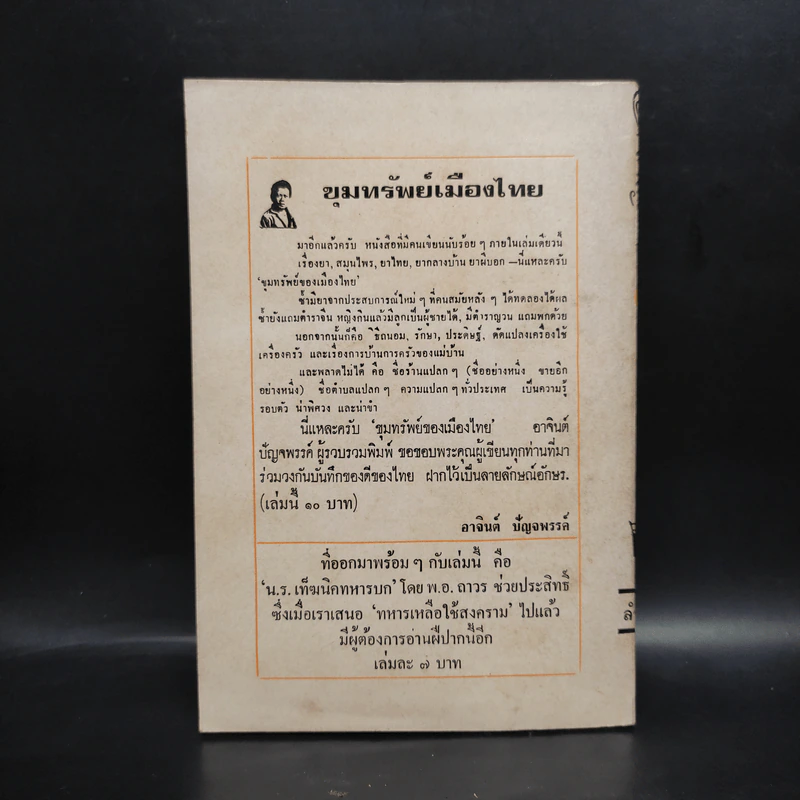 ขุมทรัพย์เมืองไทย
มาอีกแล้วครับ หนังสือที่มีคนเขียนนับร้อย ๆ ภายในเล่มเดียวนี้
เรื่องยา, สมุนไพร, ยาไทย, ยากลางบ้าน ยาผีบอก —นี่แหละครับ
'ขุมทรัพย์ของเมืองไทย'
ซ้ำมียาจากประสบการณ์ใหม่ ๆ ที่คนสมัยหลัง ๆ ได้ทดลองได้ผล
ซ้ำยังแถมตำราจีน หญิงกินแล้วมีลูกเป็นผู้ชายได้, มีตำราญวน แถมพกด้วย
นอกจากนั้นก็คือ วิธีถนอม, รักษา, ประดิษฐ์, ดัดแปลงเครื่องใช้
เครื่องครัว และเรื่องการบ้านการครัวของแม่บ้าน
และพลาดไม่ได้ คือ ชื่อร้านแปลก ๆ (ชื่ออย่างหนึ่ง ขายอีก
อย่างหนึ่ง) ชื่อตำบลแปลก ๆ ความแปลก ๆ ทั่วประเทศ เป็นความรู้
รอบตัว น่าพิศวง และน่าขำ
นี่แหละครับ 'ขุมทรัพย์ของเมืองไทย' อาจินต์
ปัญจพรรค์ ผู้รวบรวมพิมพ์ ขอขอบพระคุณผู้เขียนทุกท่านที่มา
ร่วมวงกันบันทึกของดีของไทย ฝากไว้เป็นลายลักษณ์อักษร.
(เล่มนี้ ๑๐ บาท)
อาจินต์ ปัญจพรรค์
ที่ออกมาพร้อม ๆ กับเล่มนี้ คือ
'น.ร. เท็ฆนิคทหารบก' โดย พ.อ. ถาวร ช่วยประสิทธิ์
ซึ่งเมื่อเราเสนอ 'ทหารเหลือใช้สงคราม' ไปแล้ว
มีผู้ต้องการอ่านฝีปากนี้อีก
เล่มละ ๗ บาท